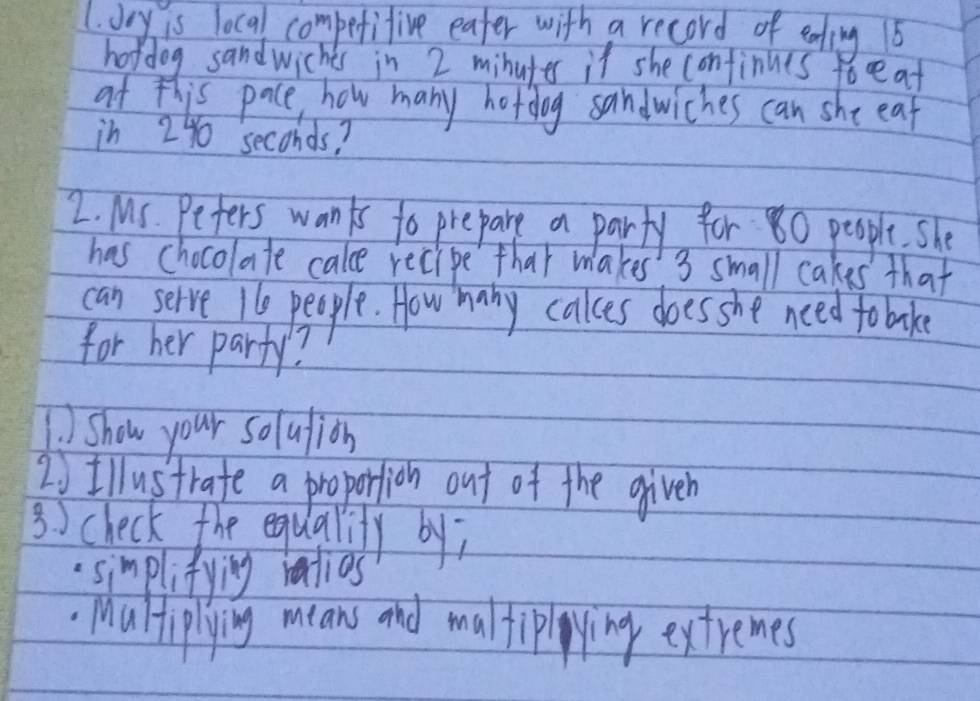 1. Joy is local competitive eater with a record of eating 15
hotdog sandwiches in 2 minutes if she continues to eat
at this pace, how many hotdog sandwiches can she eat
in 240 seconds?
2. Ms. Peters wants to prepare a party for 80 people. She
has chocolate cake recipe that makes 3 small cakes that
can serve 16 people. How many cakes does she need to bake
for her party?
1.) Show your solution
2.) Illustrate a proportion out of the given
3.) check the equality by;
• simplifying ratios
• Multiplying means and multiplying extremes